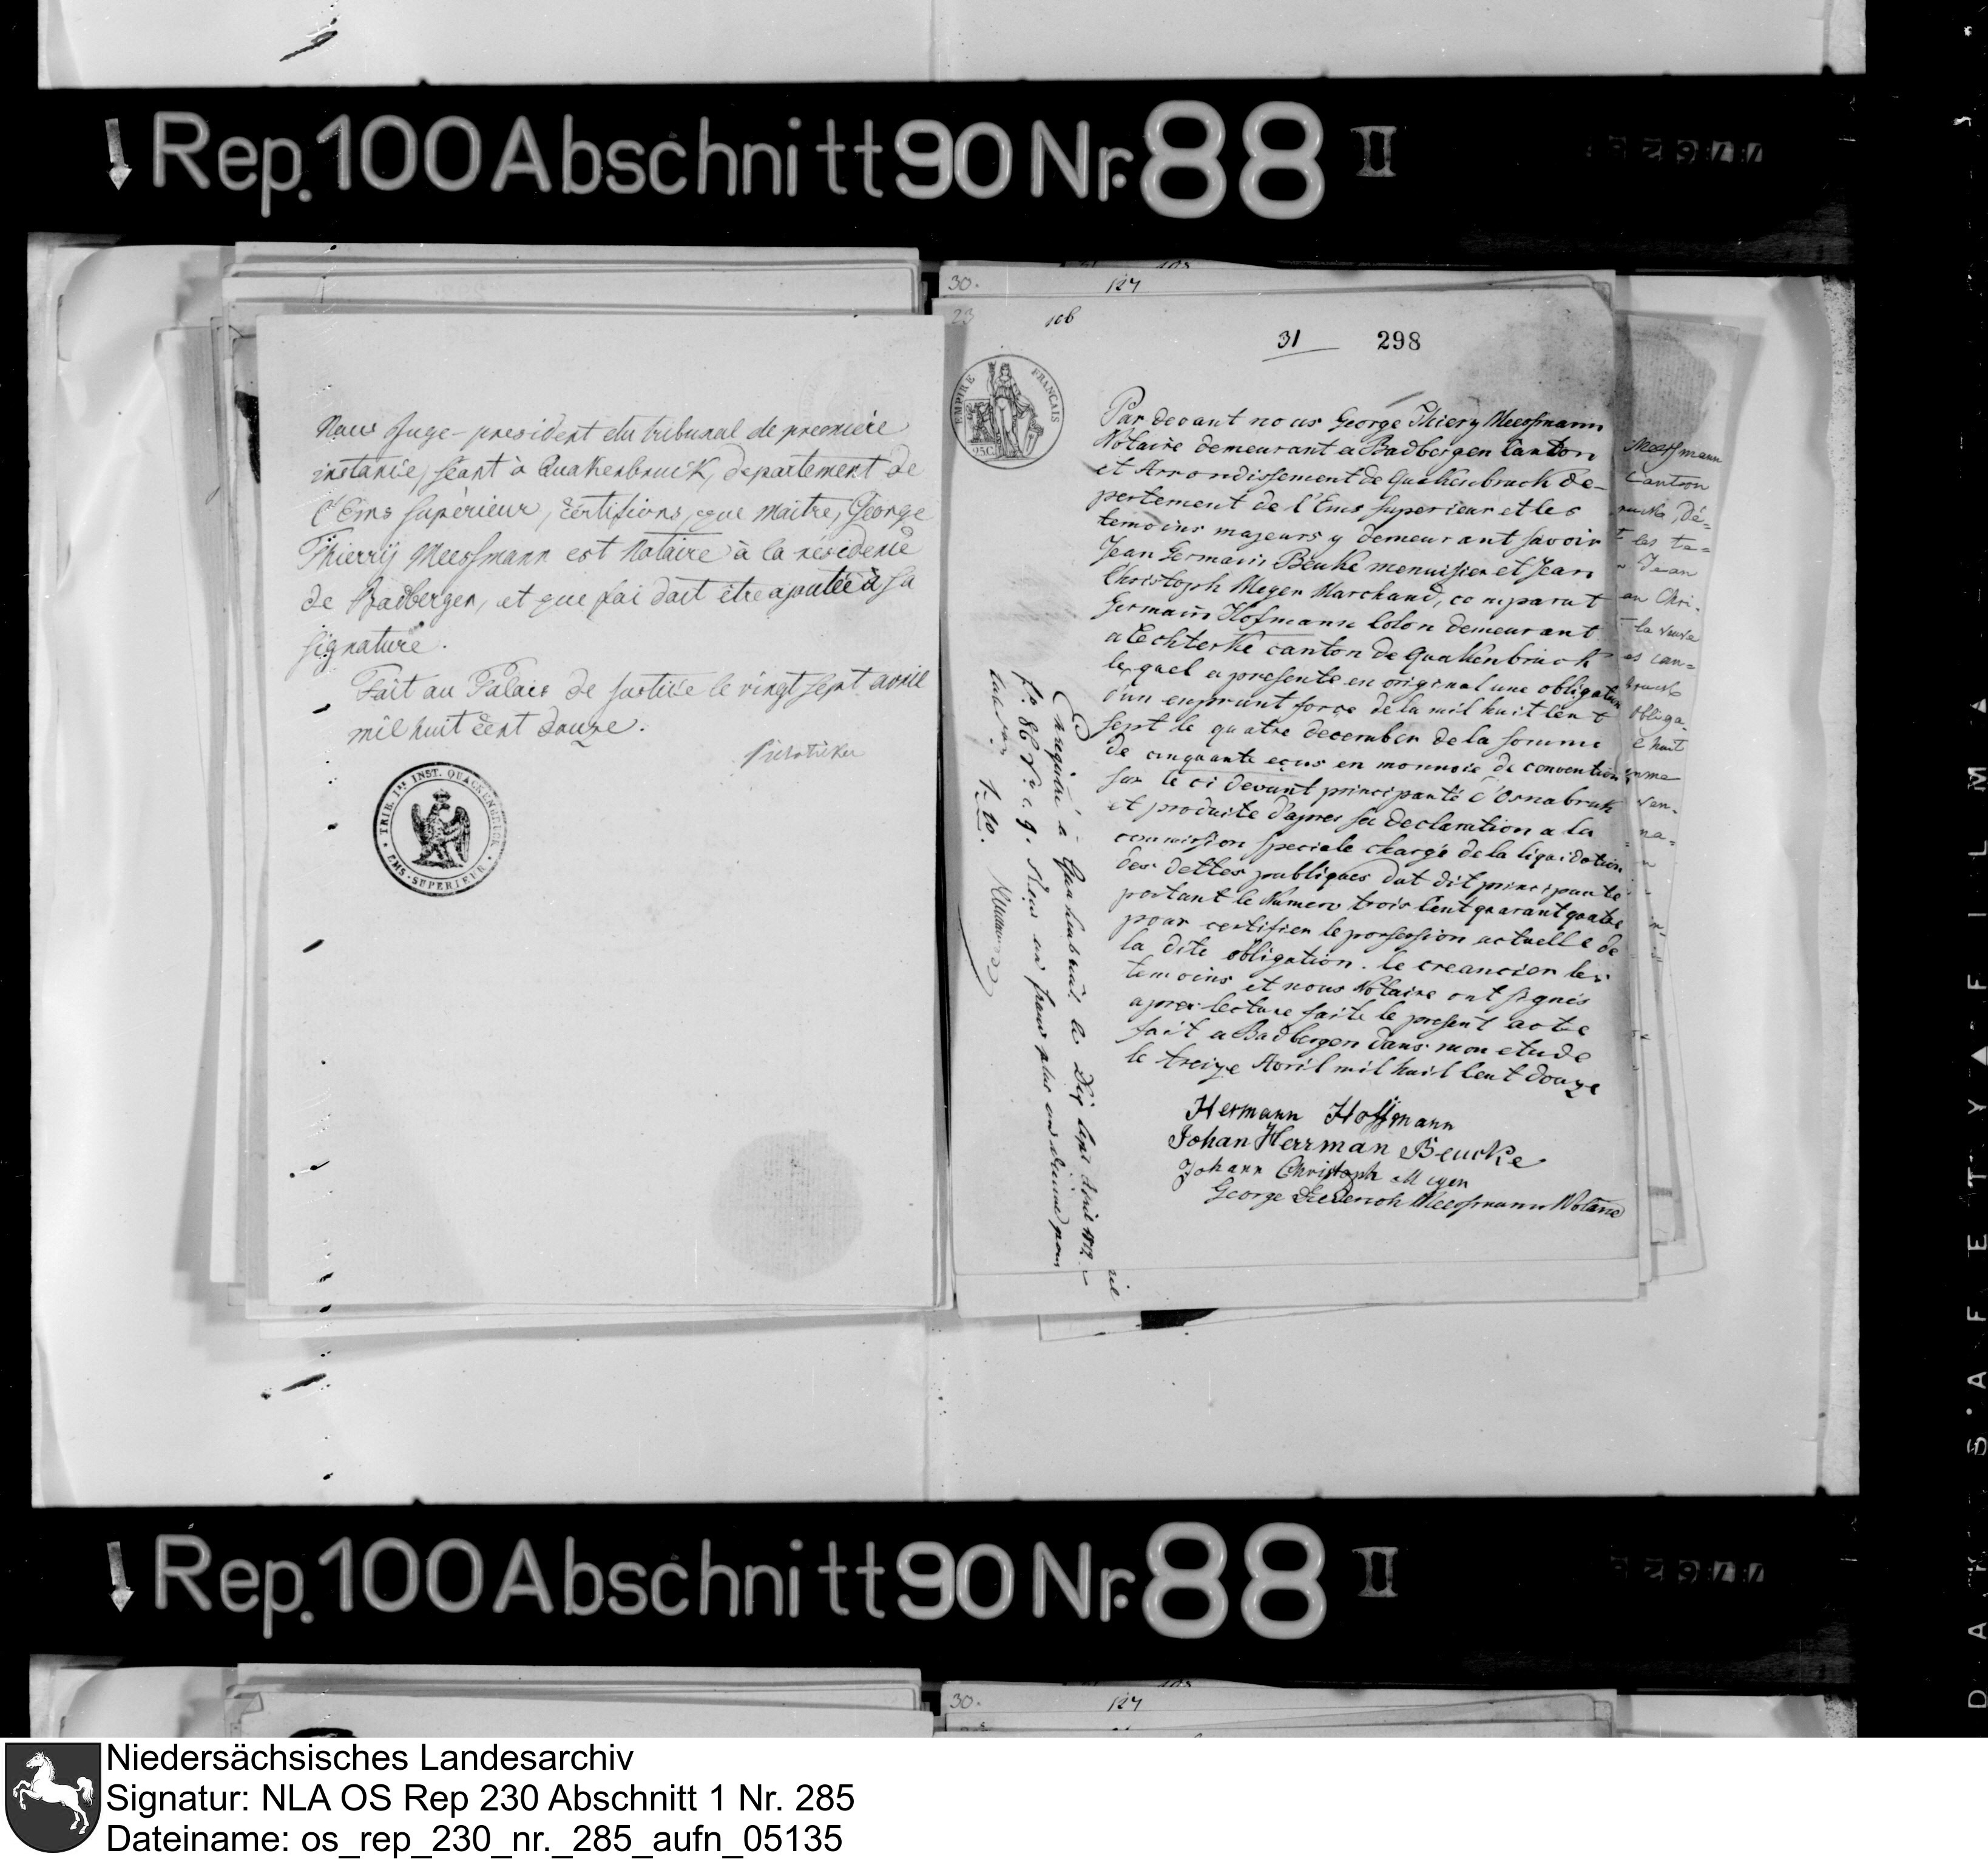 Rep. 100 Abschnitt 90 Nr. 88 II
Nous Juge-president du tribunal de premiere
instance, séant à Quakenbruck, departement de
l'Ems supérieur, certifions, que maitre, George
Thierry Meessmann est Notaire à la résidence
de Badbergen, et que foi doit être ajoutée à sa
signature.
Fait au Palais de Justice le vingt sept avril
mil huit cent douze.
TRIB. 1re INST. QUACKENBRUCK
EMS-SUPERIEUR
30. 127
23 106
31 298
EMPIRE FRANCAIS
25C
Par devant nous George Thiery Meessmann
Notaire demeurant a Badbergen Canton
et Arrondissement de Quakenbruck de-
pertement de l'Ems superieur et les
temoins majeurs y demeurant savoir
Jean Germain Beuke menuisier et Jean
Christoph Meyer Marchand, comparut
Germain Hofmann Colon demeurant
a Lechterke canton de Quakenbruck
lequel a presente en original une obligation
d'un emprunt force de la mil huit Cent
sept le quatre december de la somme
de cinquante ecus en monnoie de convention
sur le ci devant principauté d'Osnabruk
et produite d'apres sa declaration a la
commission speciale chargé de la liquidation
des dettes publiques dut dit principauté
portant le Numero trois Cent quarant quatre
pour certifier le possession actuelle de
la dite obligation. le creancier les
temoins et nous Notaire ont signés
apres lecture faite le present acte
fait a Badbergen dans mon etude
le treize Avril mil huit Cent douze
Hermann Hoffmann
Johan Herrman Beucke
Johann Christoph Meyer
George Diederich Meessmann Notaire
Enregistré à Quakenbruck le dix sept Avril 1812.
fo. 86 Vo. c. 9. Reçu un franc plus un decime pour
1-10.
Meessmann
Canton
les te=
Jean
an Chri-
la veuve
es can=
obliga
e huit
Rep. 100 Abschnitt 90 Nr. 88 II
30. 127
SAFETY FILM
Niedersächsisches Landesarchiv
Signatur: NLA OS Rep 230 Abschnitt 1 Nr. 285
Dateiname: os_rep_230_nr._285_aufn_05135